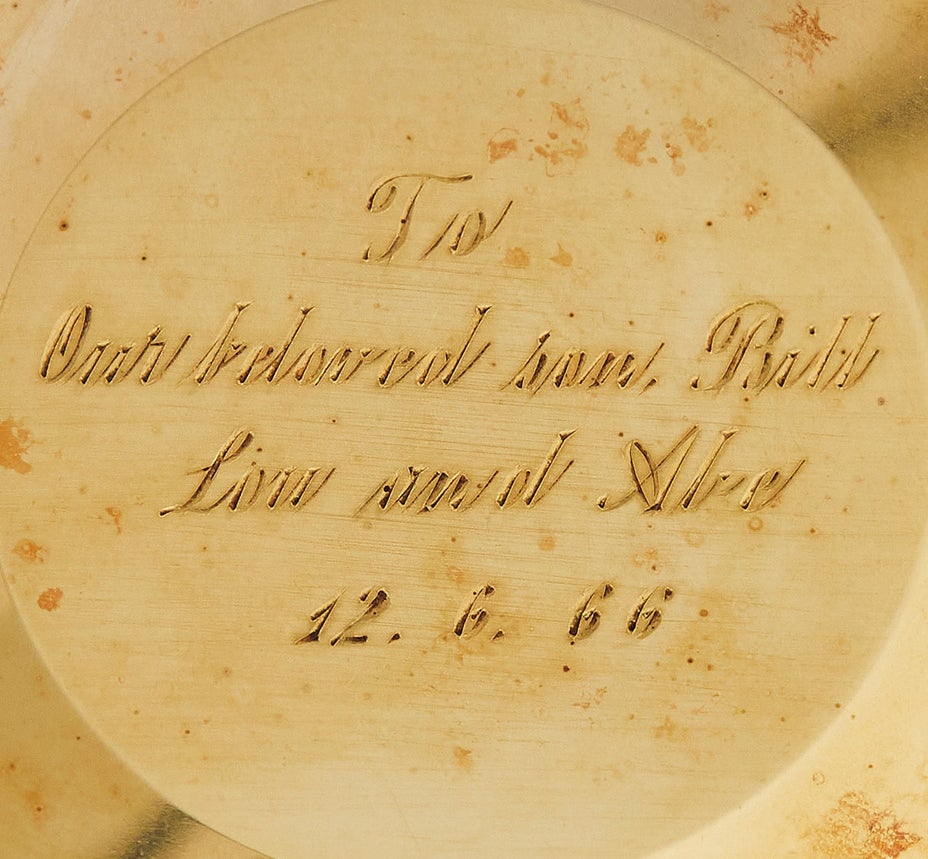 To
Our beloved son, Bill
Lou and Abe
12. 6. 66